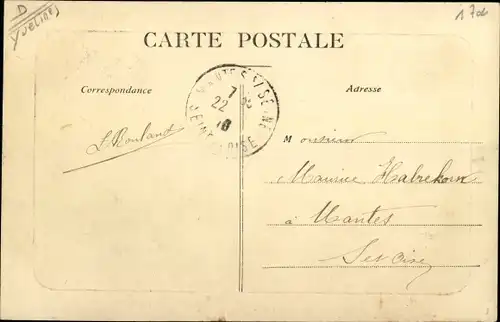 D
Yvelines
CARTE POSTALE
Correspondance
Adresse
MANTES S/ SEINE
7
22
SEINE OISE
Monsieur
Maurice Habrekorn
à Mantes
Set Oise